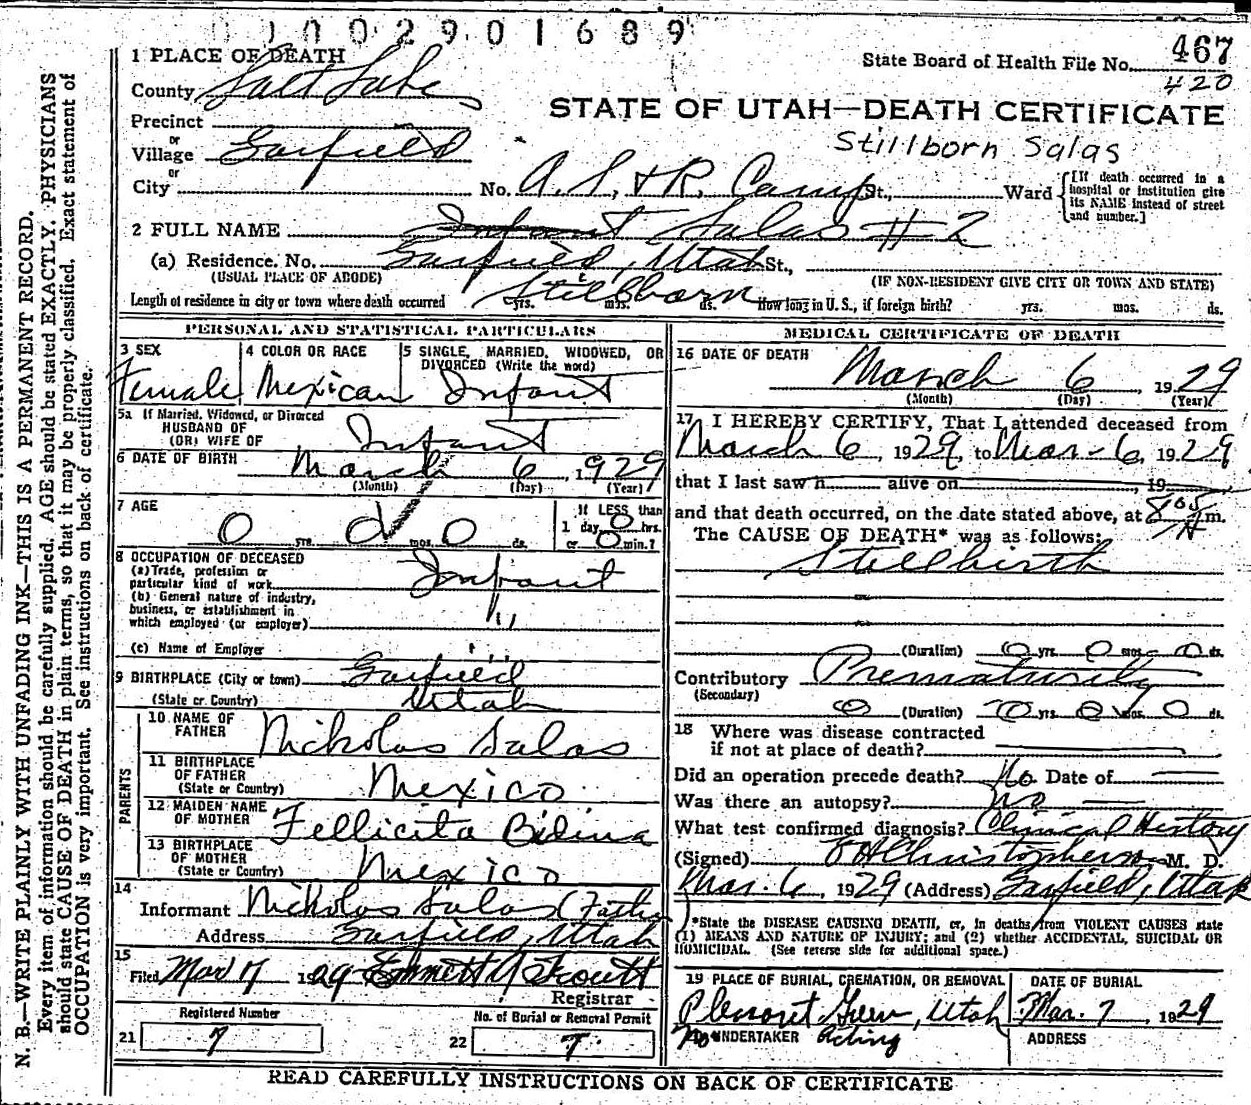 0 1 0 0 2 9 0 1 6 8 9
467
State Board of Health File No.
420
1 PLACE OF DEATH
County Salt Lake
STATE OF UTAH—DEATH CERTIFICATE
Precinct
or
Village Garfield
Stillborn Salas
or
City No. A. S. & R. Camp St., Ward
[If death occurred in a hospital or institution give its NAME instead of street and number.]
2 FULL NAME Infant Salas #2
(a) Residence. No. Garfield, Utah St.,
(USUAL PLACE OF ABODE) (IF NON-RESIDENT GIVE CITY OR TOWN AND STATE)
Stillborn
Length of residence in city or town where death occurred yrs. mos. ds. How long in U. S., if foreign birth? yrs. mos. ds.
PERSONAL AND STATISTICAL PARTICULARS
3 SEX
Female
4 COLOR OR RACE
Mexican
5 SINGLE, MARRIED, WIDOWED, OR DIVORCED (Write the word)
Infant
5a If Married, Widowed, or Divorced
HUSBAND OF
(OR) WIFE OF Infant
6 DATE OF BIRTH March 6, 1929
(Month) (Day) (Year)
7 AGE
0 yrs. 0 mos. 0 ds.
If LESS than
1 day, 0 hrs.
or 0 min.?
8 OCCUPATION OF DECEASED
(a) Trade, profession or
particular kind of work Infant
(b) General nature of industry,
business, or establishment in
which employed (or employer) "
(c) Name of Employer
9 BIRTHPLACE (City or town) Garfield
(State or Country) Utah
PARENTS
10 NAME OF
FATHER Nickolas Salas
11 BIRTHPLACE
OF FATHER
(State or Country) Mexico
12 MAIDEN NAME
OF MOTHER Fellicita Bidina
13 BIRTHPLACE
OF MOTHER
(State or Country) Mexico
14
Informant Nickolas Salas (Father)
Address Garfield, Utah
15
Filed Mar 7 1929 Emmett
Registrar
Registered Number
21 7
No. of Burial or Removal Permit
22 7
MEDICAL CERTIFICATE OF DEATH
16 DATE OF DEATH
March 6 1929
(Month) (Day) (Year)
17 I HEREBY CERTIFY, That I attended deceased from
March 6, 1929, to Mar - 6, 1929,
that I last saw h alive on , 19
and that death occurred, on the date stated above, at 8 05 A m.
The CAUSE OF DEATH* was as follows:
Stillbirth
(Duration) 0 yrs. 0 mos. 0 ds.
Contributory Prematurity
(Secondary)
0 (Duration) 0 yrs. 0 mos. 0 ds.
18 Where was disease contracted
if not at place of death?
Did an operation precede death? No. Date of
Was there an autopsy? no
What test confirmed diagnosis? Clinical History
(Signed) Christopherson M. D.
Mar. 6, 1929 (Address) Garfield, Utah
*State the DISEASE CAUSING DEATH, or, in deaths from VIOLENT CAUSES state
(1) MEANS AND NATURE OF INJURY; and (2) whether ACCIDENTAL, SUICIDAL OR
HOMICIDAL. (See reverse side for additional space.)
19 PLACE OF BURIAL, CREMATION, OR REMOVAL
Pleasant Green, Utah
DATE OF BURIAL
Mar. 7, 1929
20 UNDERTAKER
No Acting
ADDRESS
READ CAREFULLY INSTRUCTIONS ON BACK OF CERTIFICATE
N. B.—WRITE PLAINLY WITH UNFADING INK—THIS IS A PERMANENT RECORD.
Every item of information should be carefully supplied. AGE should be stated EXACTLY. PHYSICIANS
should state CAUSE OF DEATH in plain terms, so that it may be properly classified. Exact statement of
OCCUPATION is very important. See instructions on back of certificate.